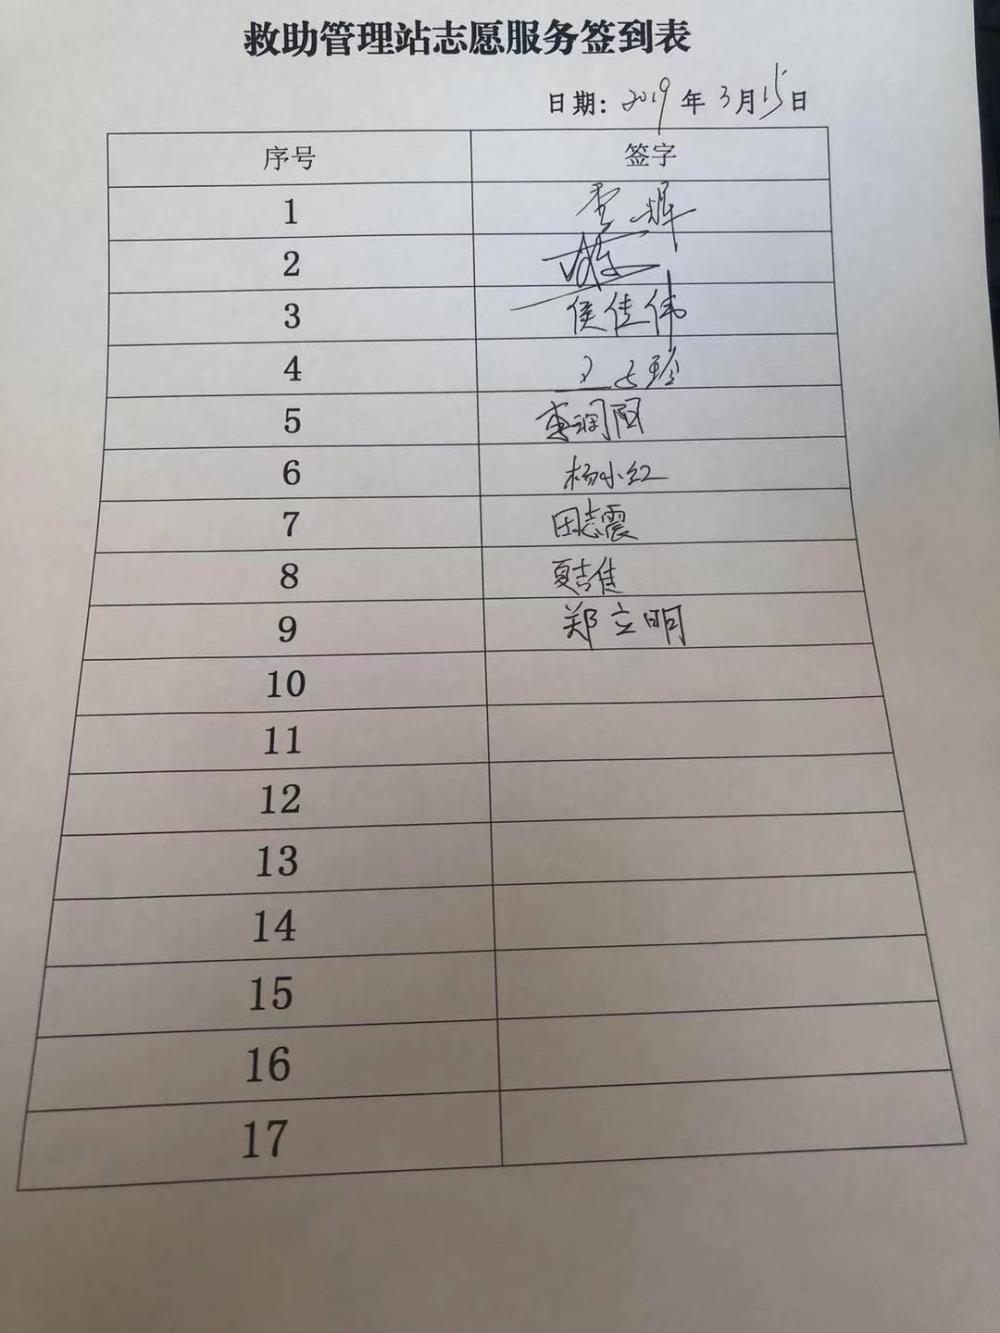 救助管理站志愿服务签到表
日期: 2019 年 3 月 15 日
序号 签字
1 李辉
2
3 侯佳伟
4
5 李润阳
6 杨小红
7 田志震
8 夏吉佳
9 郑立明
10
11
12
13
14
15
16
17